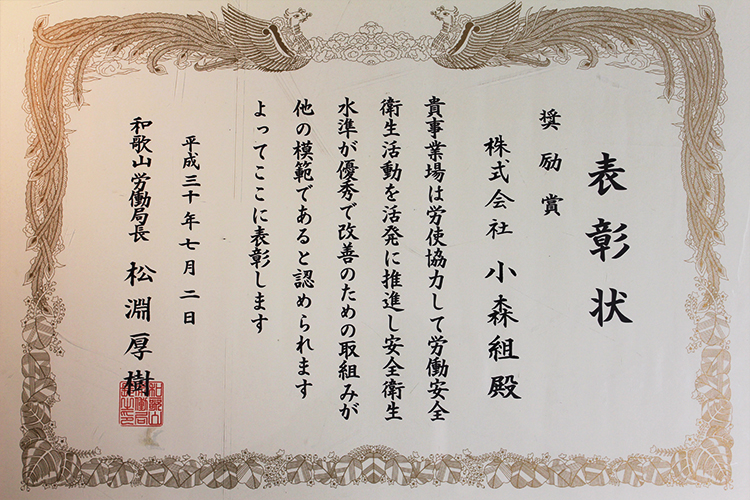 表彰状
奨励賞
株式会社 小森組殿
貴事業場は労使協力して労働安全
衛生活動を活発に推進し安全衛生
水準が優秀で改善のための取組みが
他の模範であると認められます
よってここに表彰します
平成三十年七月二日
和歌山労働局長 松淵厚樹